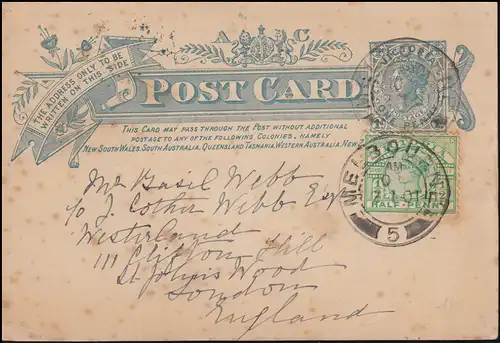 A C
THE ADDRESS ONLY TO BE
WRITTEN ON THIS SIDE
POST CARD
VICTORIA
THIS CARD MAY PASS THROUGH THE POST WITHOUT ADDITIONAL
POSTAGE TO ANY OF THE FOLLOWING COLONIES, NAMELY
NEW SOUTH WALES, SOUTH AUSTRALIA, QUEENSLAND TASMANIA, WESTERN AUSTRALIA, NEW
MELBOURNE
5
HALF
Mr Basil Webb
c/o J. Cotha Webb Esq
Westerland
111 Clifton Hill
St Johns Wood
London
England